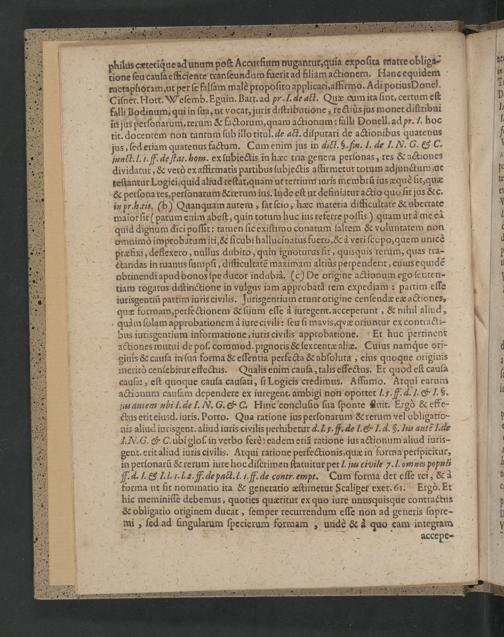 philus cæteriq́ue ad unum post Accursium nugantur, quia exposita matre obliga-
tione seu causa efficiente transeundum fuerit ad filiam actionem. Hanc equidem
metaphoram, ut per se falsam malè proposito applicari, affirmo. Adi potius Donel.
Cisner. Hott. Wesemb. Eguin. Batt. ad pr. I. de act. Quæ cum ita sint, certum est
falli Bodinum, qui in sua, ut vocat, juris distributione, rectiùs jus monet distribui
in jus personarum, rerum & factorum, quam actionum: falli Donell. ad pr. I. hoc
tit. docentem non tantum sub illo titul. de act. disputari de actionibus quatenus
jus, sed etiam quatenus factum. Cum enim jus in dict. §. fin. I. de I. N. G. & C.
junct. l. 1. ff. de stat. hom. ex subjectis in hæc tria genera personas, res & actiones
dividatur, & verò ex affirmatis partibus subjectis affirmetur totum adjunctum, ut
testantur Logici, quid aliud restat, quam ut tertium iuris membrũ ius æquè sit, quàm
& persona tes, personatum & rerum ius. Inde est ut definiatur actio quo sit jus &c.
in pr. h. tit. (b) Quanquam autem, sit scio, hæc materia difficultate & ubertate
maior sit (parum enim abest, quin totum huc ius referre possis) quam ut à me eâ
quid dignum dici possit: tamen sic existimo conatum saltem & voluntatem non
omnimò improbatum iri, & sicubi hallucinatus fuero, & à veri scopo, quem unicè
præfixi, deflexero, nullus dubito, quin ignoturus sit, quisquis rerum, quas tra-
ctandas in manus sumpsi, difficultatẽ maximam altius perpendent, cuius equidẽ
obtinendi apud bonos spe ducor indubiâ. (c) De origine actionum ego senten-
tiam rogatus distinctione in vulgus iam approbatâ rem expediam: partim esse
iurisgentiũ partim iuris civilis. Jurisgentium erunt origine censendæ eæ actiones,
quæ formam, perfectionem & suum esse à iuregent. acceperunt, & nihil aliud,
quàm solam approbationem à iure civili: seu si mavis, quæ oriuntur ex contracti-
bus iurisgentium informatione, iuris civilis approbatione. Et huc pertinent
actiones mutui depos. commod. pignoris & sexcentæ aliæ. Cuius namque ori-
ginis & causa in sua forma & essentia perfecta & absoluta, eius quoque originis
meritò censebitur effectus. Qualis enim causa, talis effectus. Et quod est causa
causæ, est quoque causa causati, si Logicis credimus. Assumo. Atqui earum
actionum causam dependere ex iuregent. ambigi non oportet l. 5. ff. d. I. & I. §.
jus autem ubi I. de I. N. G. & C. Hinc conclusio sua sponte fluit. Ergò & effe-
ctus erit eiusd. iuris. Porto. Qua ratione ius personarum & rerum vel obligatio-
nis aliud iurisgent. aliud iuris civilis perhibetur d. l. 5. ff. de I. & I. d. §. Ius autẽ I. de
I. N. G. & C. ubi glos. in verbo ferè: eadem etiã ratione ius actionum aliud iuris-
gent. erit aliud iuris civilis. Atqui ratione perfectionis, quæ in forma perspicitur,
in personarũ & rerum iure hoc discrimen statuitur per l. jus civile 7. l. omnes populi
ff. d. I. & I. l. 1. l. 2. ff. de pact. l. 1. ff. de contr. empt. Cum forma det esse rei, & à
forma ut sit nominatio ita & generatio æstimetur Scaliger exer. 61. Ergò. Et
hic meminisse debemus, quoties quæritur ex quo iure unusquisque contractus
& obligatio originem ducat, semper recurrendum esse non ad generis supre-
mi, sed ad singularum specierum formam, undè & à quo eam integram
accepe-